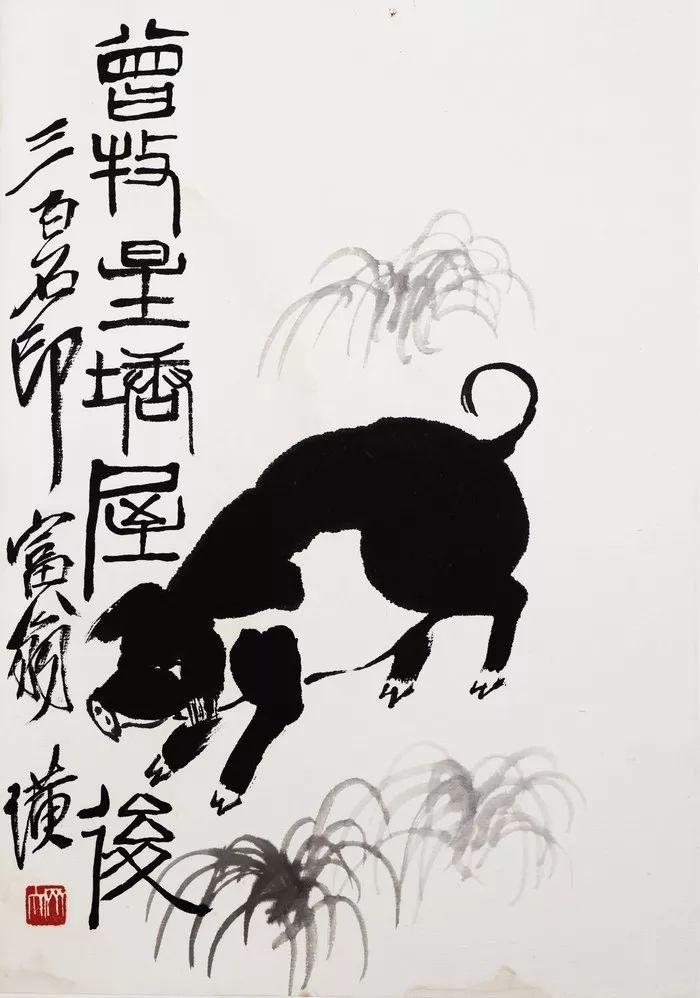 曾牧星塘屋後
三百石印富翁璜